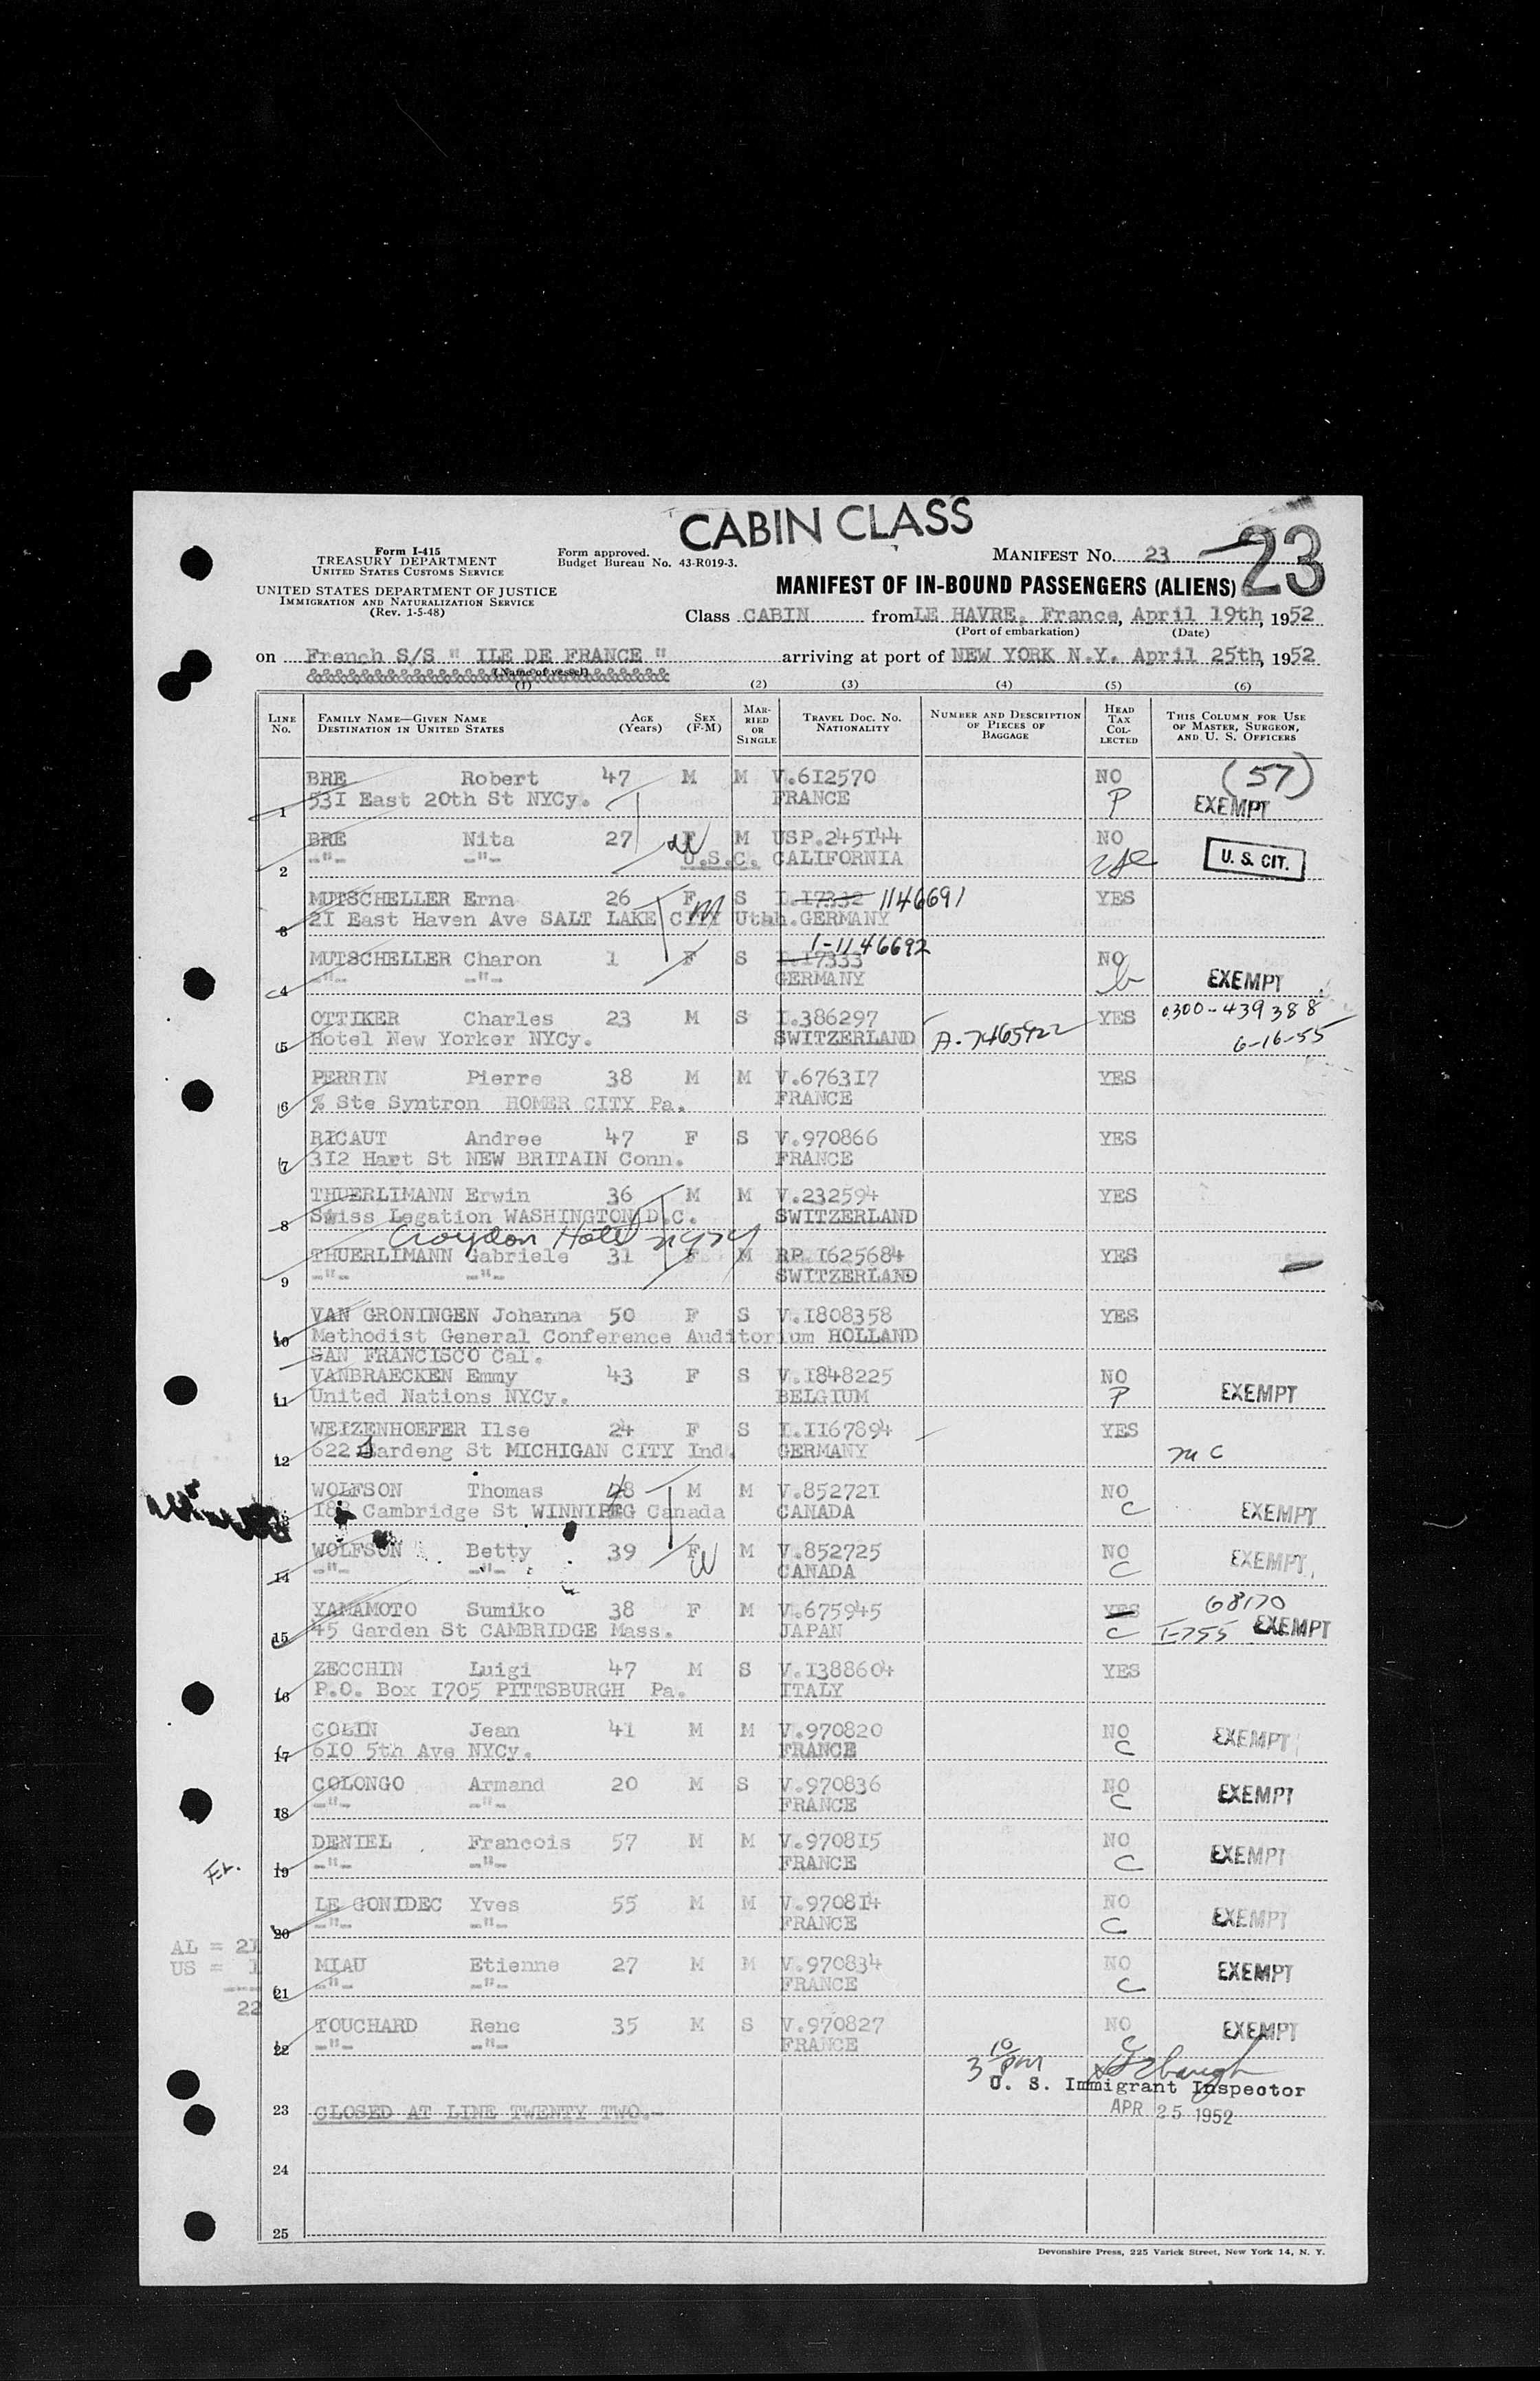 CABIN CLASS
Form I-415
TREASURY DEPARTMENT
UNITED STATES CUSTOMS SERVICE
UNITED STATES DEPARTMENT OF JUSTICE
IMMIGRATION AND NATURALIZATION SERVICE
(Rev. 1-5-48)
Form approved.
Budget Bureau No. 43-R019-3.
MANIFEST NO. 23
23
MANIFEST OF IN-BOUND PASSENGERS (ALIENS)
Class CABIN from LE HAVRE, France, April 19th, 1952
(Port of embarkation) (Date)
on French S/S " ILE DE FRANCE " arriving at port of NEW YORK N.Y. April 25th, 1952
(Name of vessel)
&&&&&&&&&&&&&&&&&&&&&&&&&&
(1) (2) (3) (4) (5) (6)
LINE NO. FAMILY NAME—GIVEN NAME DESTINATION IN UNITED STATES AGE (Years) SEX (F-M) MARRIED OR SINGLE TRAVEL DOC. NO. NATIONALITY NUMBER AND DESCRIPTION OF PIECES OF BAGGAGE HEAD TAX COLLECTED THIS COLUMN FOR USE OF MASTER, SURGEON, AND U. S. OFFICERS
BRE Robert 47 M M V.612570 NO (57)
1 531 East 20th St NYCy. FRANCE P EXEMPT
BRE Nita 27 F M USP.245144 NO
2 -"- -"- U.S.C. CALIFORNIA U. S. CIT.
MUTSCHELLER Erna 26 F S I.17332 1146691 YES
3 21 East Haven Ave SALT LAKE CITY Utah. GERMANY
I-1146692
MUTSCHELLER Charon 1 F S I.17333 NO
4 -"- -"- GERMANY EXEMPT
OTTIKER Charles 23 M S I.386297 YES 0300-439388
5 Hotel New Yorker NYCy. SWITZERLAND A-7465922 6-16-55
PERRIN Pierre 38 M M V.676317 YES
6 % Ste Syntron HOMER CITY Pa. FRANCE
RICAUT Andree 47 F S V.970866 YES
7 312 Hart St NEW BRITAIN Conn. FRANCE
THUERLIMANN Erwin 36 M M V.232594 YES
8 Swiss Legation WASHINGTON D.C. SWITZERLAND
Croydon Hotel NYCY
THUERLIMANN Gabriele 31 F M RP 1625684 YES
9 -"- -"- SWITZERLAND
VAN GRONINGEN Johanna 50 F S V.1808358 YES
10 Methodist General Conference Auditorium HOLLAND
SAN FRANCISCO Cal.
VANBRAECKEN Emmy 43 F S V.1848225 NO
11 United Nations NYCy. BELGIUM P EXEMPT
WEIZENHOEFER Ilse 24 F S I.1167894 YES
12 622 Gardeng St MICHIGAN CITY Ind. GERMANY
WOLFSON Thomas 48 M M V.852721 NO
13 Cambridge St WINNIPEG Canada CANADA C EXEMPT
WOLFSON Betty 39 F M V.852725 NO
14 -"- -"- CANADA C EXEMPT
YAMAMOTO Sumiko 38 F M V.675945 YES 68170
15 45 Garden St CAMBRIDGE Mass. JAPAN C I-755 EXEMPT
ZECCHIN Luigi 47 M S V.1388604 YES
16 P.O. Box 1705 PITTSBURGH Pa. ITALY
COLIN Jean 41 M M V.970820 NO
17 610 5th Ave NYCy. FRANCE C EXEMPT
COLONGO Armand 20 M S V.970836 NO
18 -"- -"- FRANCE C EXEMPT
DENIEL Francois 57 M M V.970815 NO
19 -"- -"- FRANCE C EXEMPT
LE GONIDEC Yves 55 M M V.970814 NO
20 -"- -"- FRANCE C EXEMPT
AL = 21
US = 1
---
22
MIAU Etienne 27 M M V.970834 NO
21 -"- -"- FRANCE C EXEMPT
TOUCHARD Rene 35 M S V.970827 NO
22 -"- -"- FRANCE C EXEMPT
3 10 PM
U. S. Immigrant Inspector
23 CLOSED AT LINE TWENTY TWO.- APR 25 1952
24
25
Devonshire Press, 225 Varick Street, New York 14, N. Y.